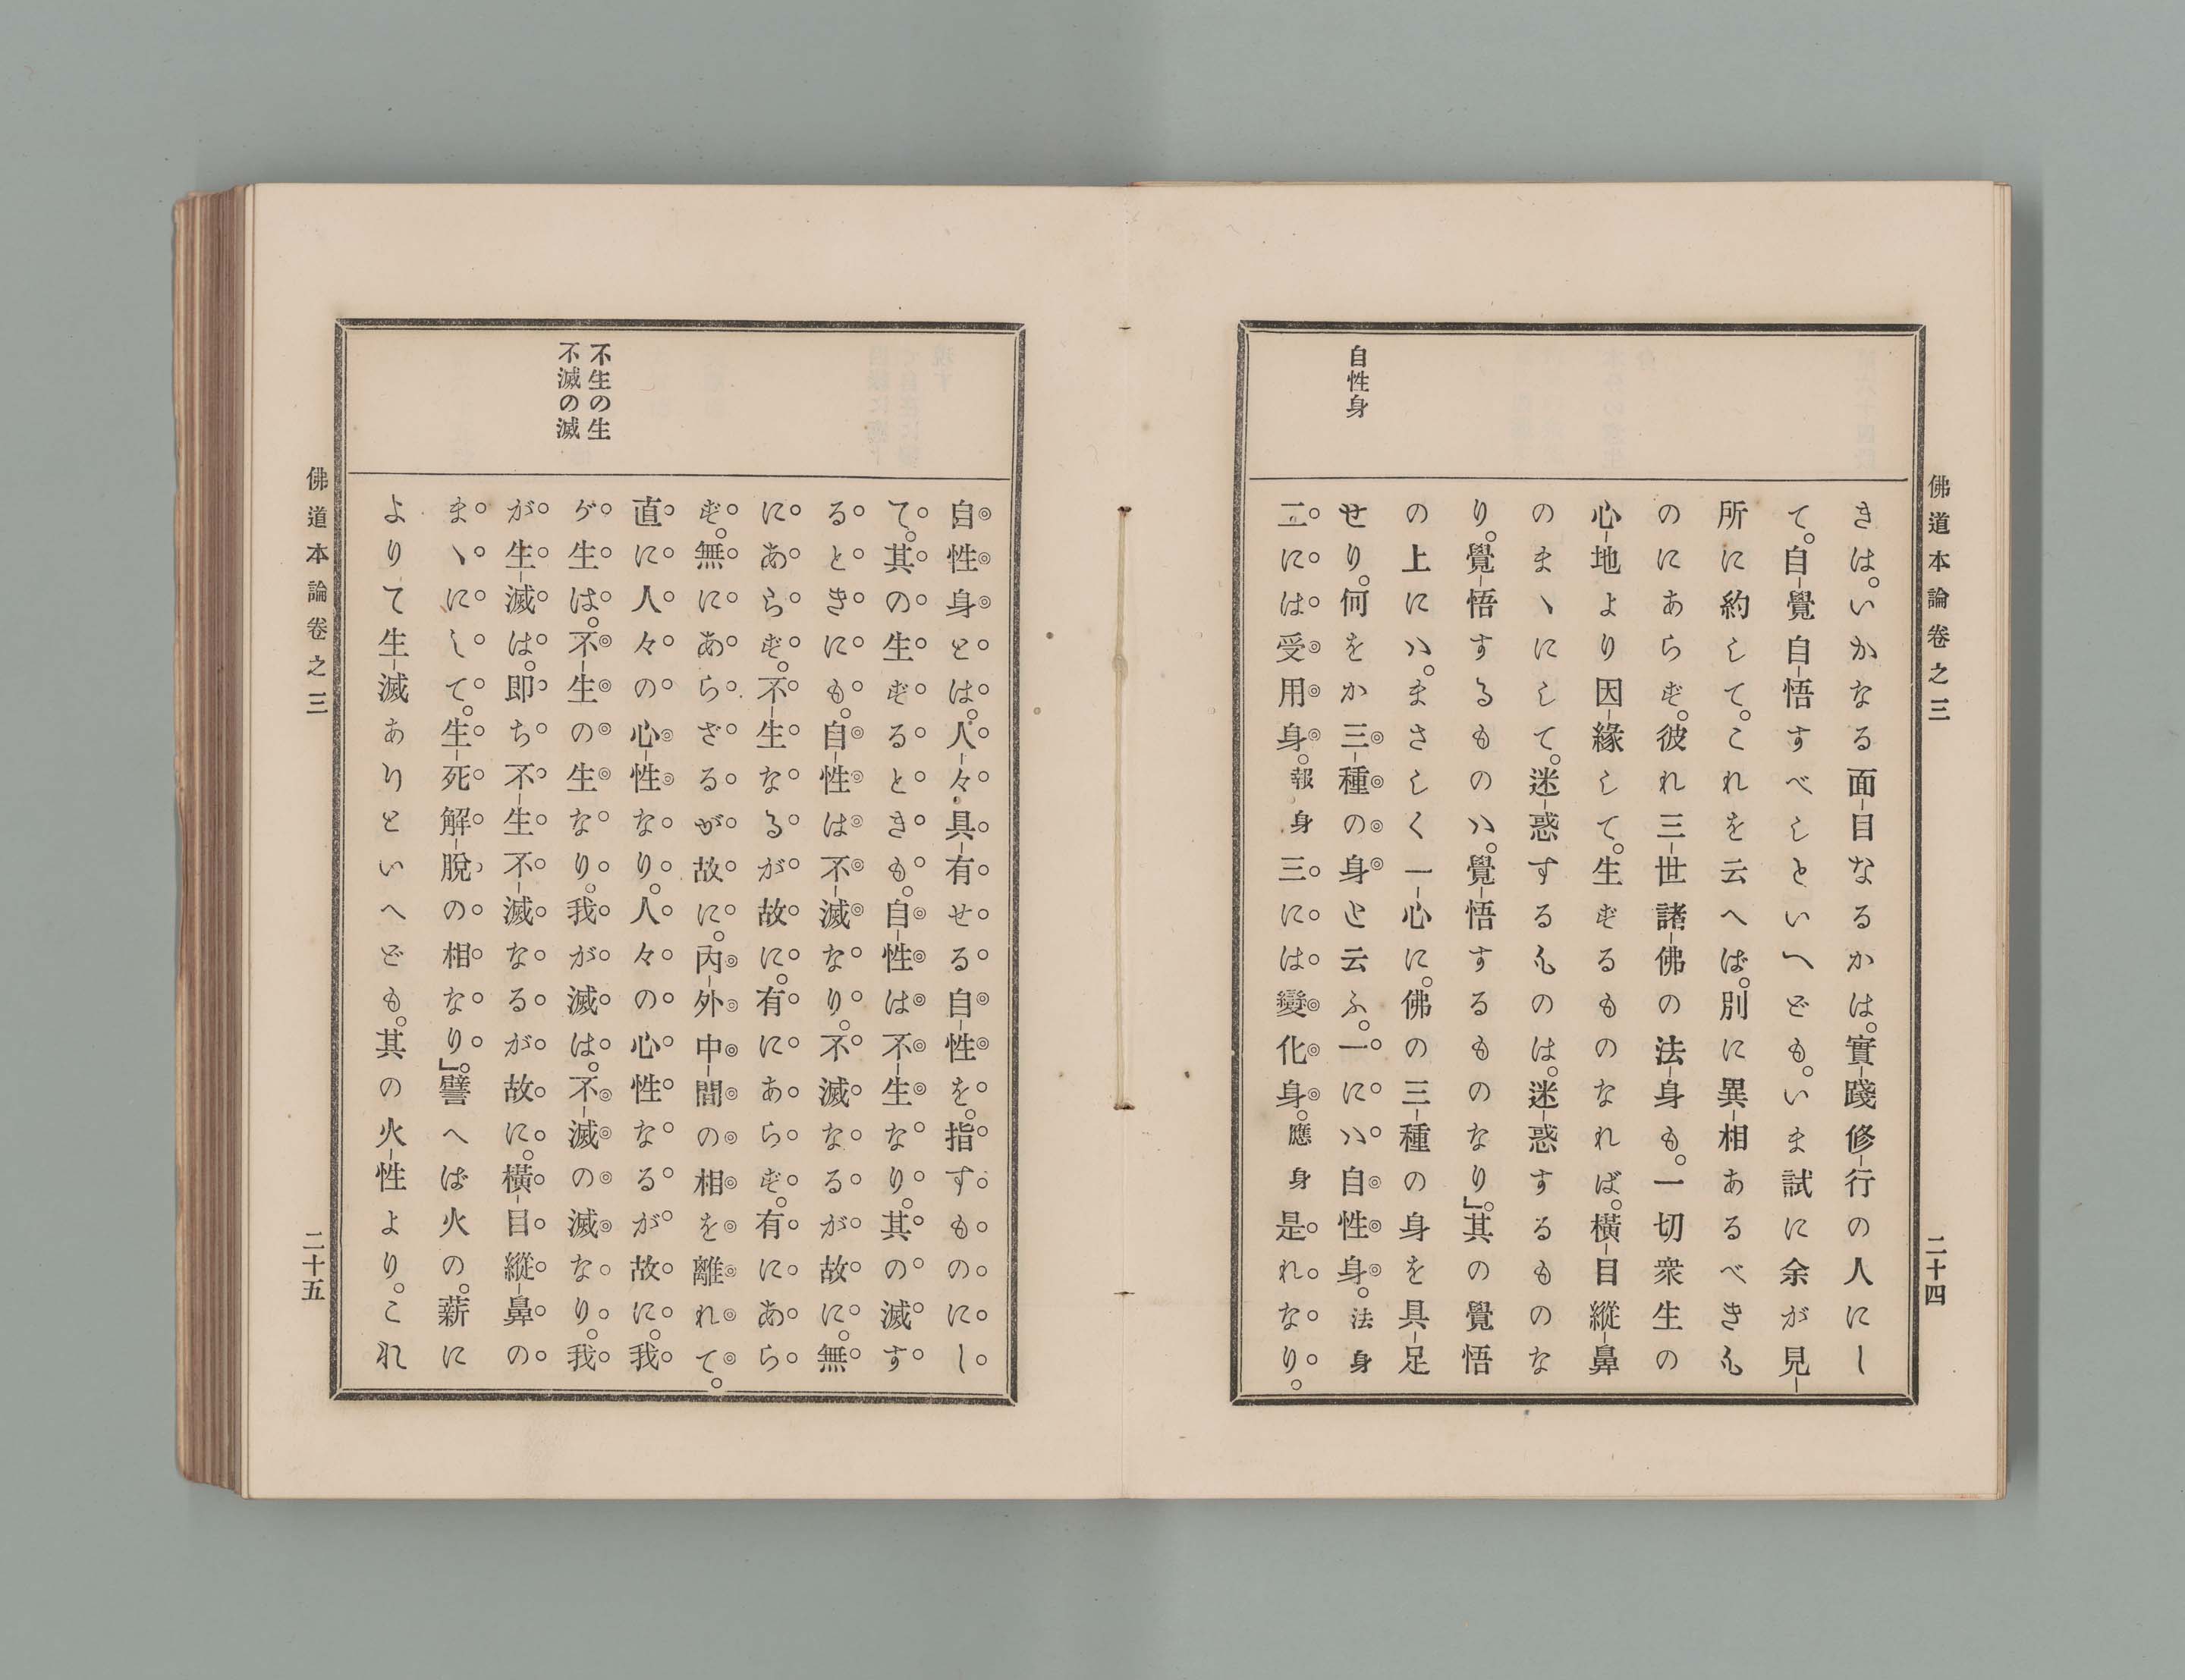 佛道本論卷之三
二十四
自性身
きは。いかなる面目なるかは。實踐修行の人にし
て。自覺自悟すべしといへども。いま試に余が見
所に約して。これを云へば。別に異相あるべきも
のにあらず。彼れ三世諸佛の法身も。一切衆生の
心地より因緣して。生ずるものなれば。橫目縱鼻
のまヽにして。迷惑するものは。迷惑するものな
り。覺悟するものハ。覺悟するものなり。』其の覺悟
の上にハ。まさしく一心に。佛の三種の身を具足
せり。何をか三種の身と云ふ。一にハ自性身。法身
二には受用身。報身三には變化身。應身是れなり。
自性身とは。人々具有せる自性を。指すものにし
て。其の生ずるときも。自性は不生なり。其の滅す
るときにも。自性は不滅なり。不滅なるが故に。無
にあらず。不生なるが故に。有にあらず。有にあら
ず。無にあらざるが故に。內外中間の相を離れて。
直に人々の心性なり。人々の心性なるが故に。我
が生は。不生の生なり。我が滅は。不滅の滅なり。我
が生滅は。即ち不生不滅なるが故に。橫目縱鼻の
まヽにして。生死解脫の相なり。』譬へば火の。薪に
よりて生滅ありといへども。其の火性より。これ
不生の生
不滅の滅
佛道本論卷之三
二十五